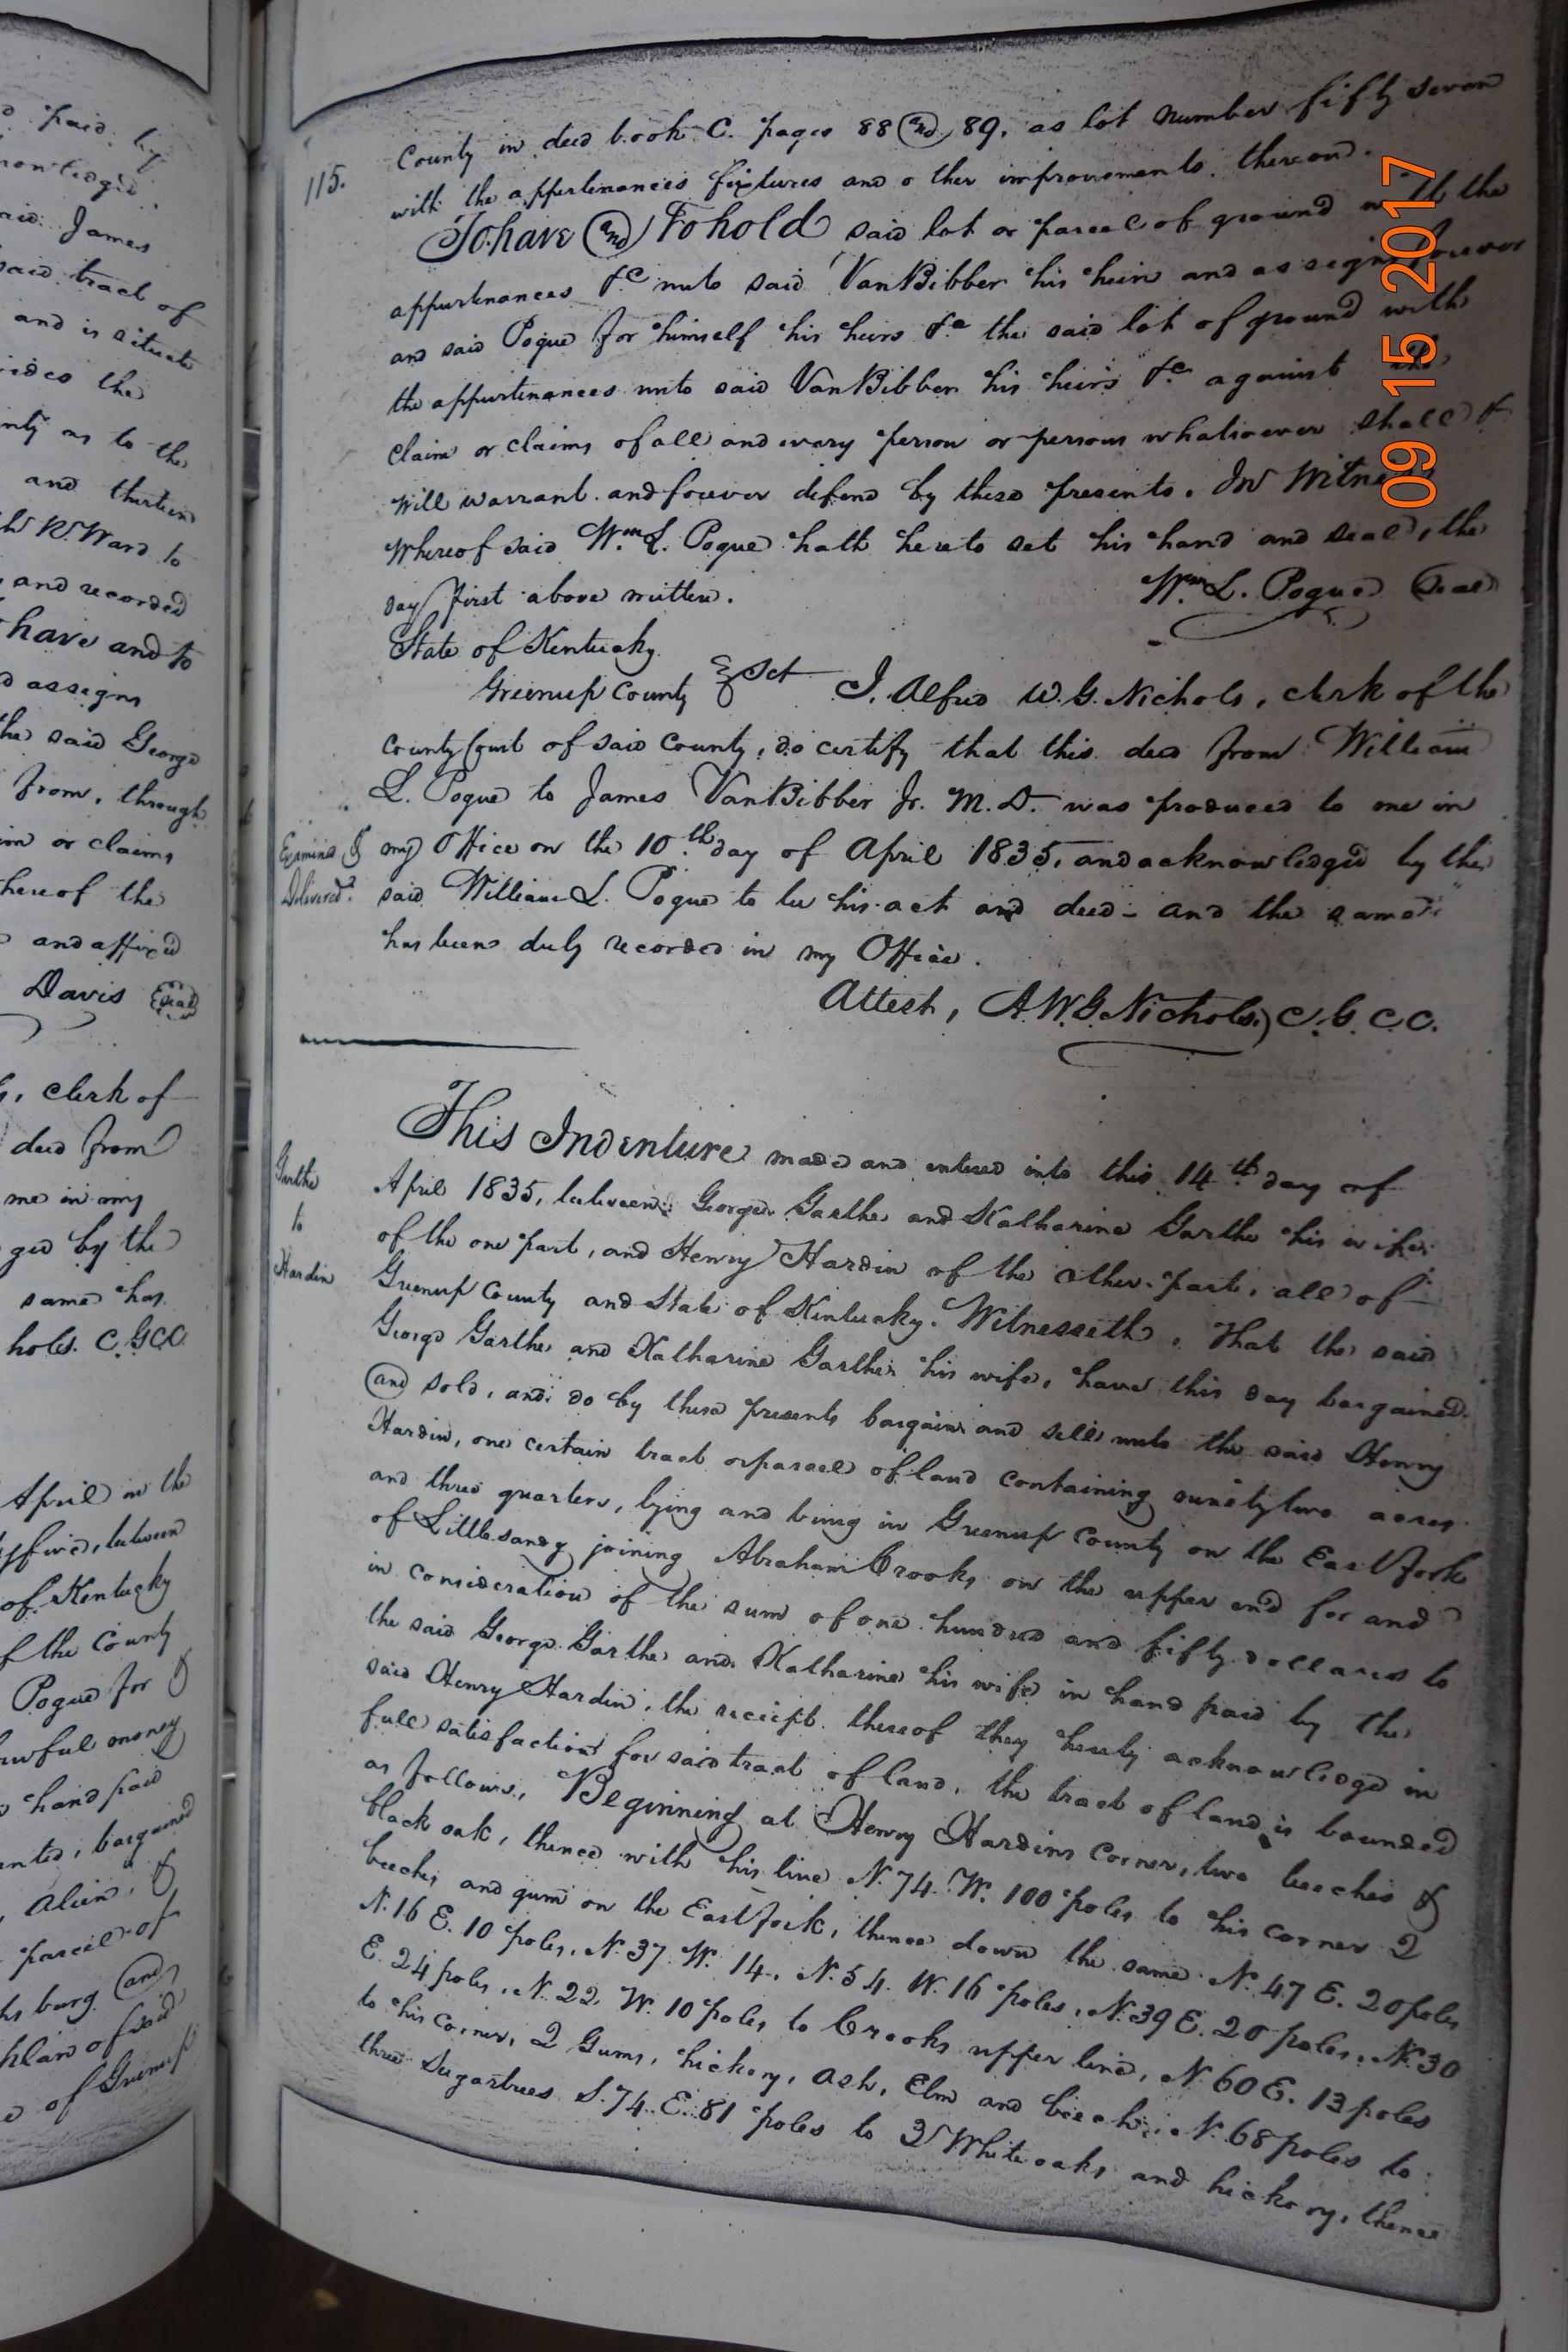 d. paid. by
nowledged
said. James
said tract of
and is situate
sides the
nty as to the
and thirteen
W. Ward to
and recorded
have and to
d assigns
the said George
from, through
im or claims
hereof the
and affixed
Davis Seal
clerk of
deed from
me in my
ged by the
same has
hols. C.G.C.C.
April in the
five, between
of Kentucky
f the County
Pogue for &
lawful money
hand paid
bargained
Alien, &
parcel of
burg and
of said
of Greenup
115.
County in deed book C. pages 88 and 89, as lot number fifty seven
with the appertenances fixtures and other improvements. thereon.
To have and To hold said lot or parcel of ground with the
appurtenances &c unto said VanBibber his heirs and assigns forever
and said Pogue for himself his heirs &c the said lot of ground with
the appurtenances unto said VanBibber his heirs &c against the
claim or claims of all and every person or persons whatsoever shall &
will warrant. and forever defend by these presents. In Witness
Whereof said Wm L. Pogue hath hereto set his hand and seal, the
day first above written.
Wm L. Pogue Seal
State of Kentucky.
Greenup County Sct I. Alfred W. G. Nichols, clerk of the
County Court of said County, do certify that this deed from William
L. Pogue to James VanBibber Jr. M.D. was produced to me in
Examined &
Delivered.
my Office on the 10th day of April 1835, and acknowledged by the
said William L. Pogue to be his act and deed - and the same
has been duly recorded in my Office.
Attest, A.W.G. Nichols C.G.C.C.
Garthe
to
Hardin
This Indenture made and entered into this 14th day of
April 1835, between George Garthe and Katharine Garthe his wife
of the one part, and Henry Hardin of the other part, all of
Greenup County and State of Kentucky. Witnesseth, That the said
George Garthe and Katharine Garthe his wife, have this day bargained
and sold, and do by these presents bargain and sell unto the said Henry
Hardin, one certain tract or parcel of land containing ninety two acres
and three quarters, lying and being in Greenup County on the East fork
of Little sandy joining Abraham Crooks on the upper end for and
in consideration of the sum of one hundred and fifty dollars to
the said George Garthe and Katharine his wife in hand paid by the
said Henry Hardin, the receipt thereof they hereby acknowledge in
full satisfaction for said tract of land, the tract of land is bounded
as follows, Beginning at Henry Hardins Corner, two beeches &
black oak, thence with his line N. 74. W. 100 poles to his corner 2
beeches and gum on the East fork, thence down the same N. 47 E. 20 poles
N. 16 E. 10 poles, N. 37. W. 14, N. 54. W. 16 poles, N. 39 E. 20 poles, N. 30
E. 24 poles, N. 22. W. 10 poles to Crooks upper line, N 60 E. 13 poles
to his corner, 2 Gums, hickory, ash, Elm and beech, N. 68 poles to
three Sugartrees S. 74. E. 81 poles to 3 White oaks and hickory, thence
09 15 2017